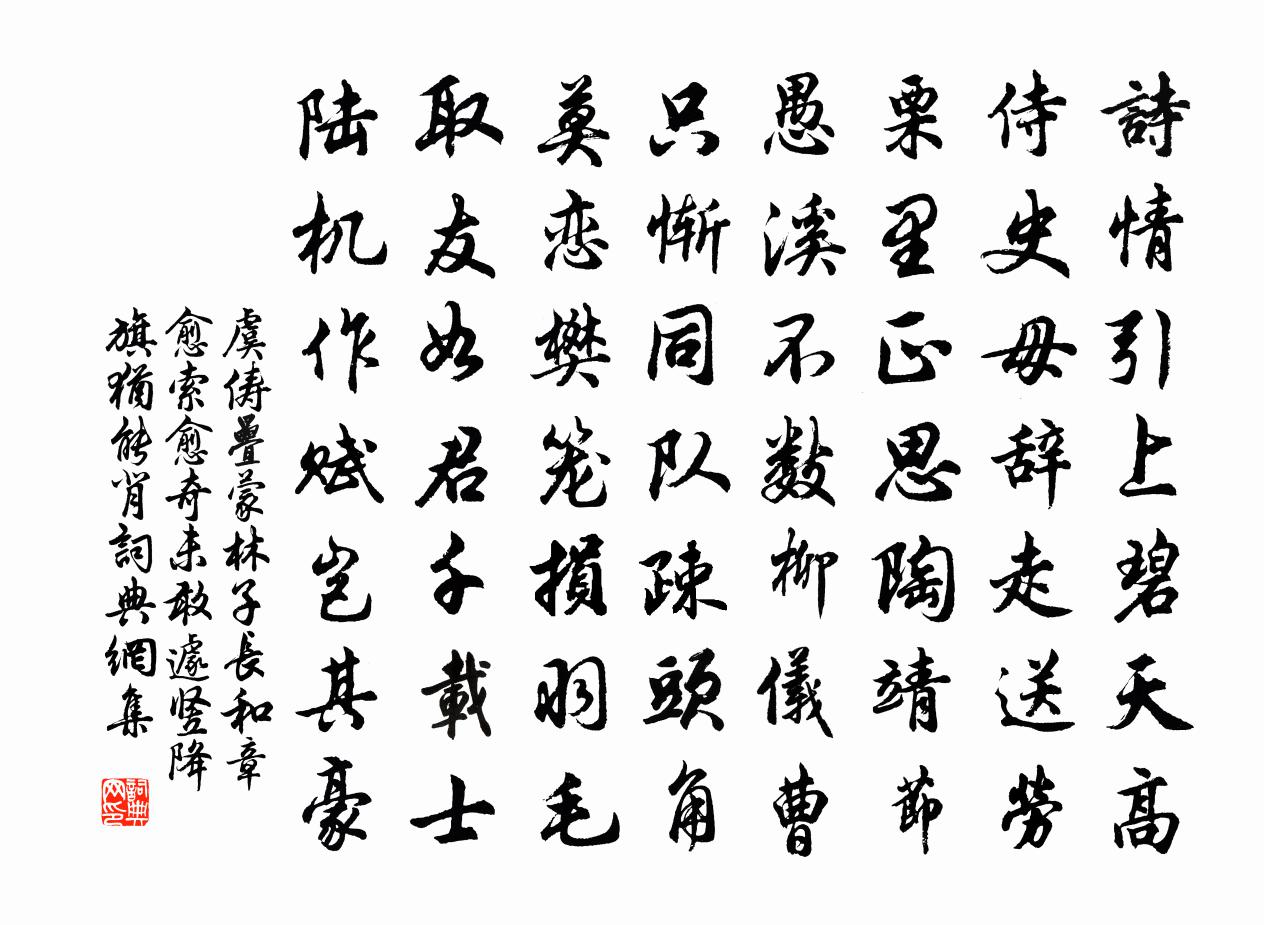 詩情引上碧天高
侍史毋辞走送勞
栗里正思陶靖節
愚溪不数柳儀曹
只惭同队疎頭角
莫恋樊笼損羽毛
取友如君千載士
陆机作赋岂其豪
虞儔疊蒙林子長和章
愈索愈奇未敢遽竖降
旗猶能肖詞典網集
詞典
网印